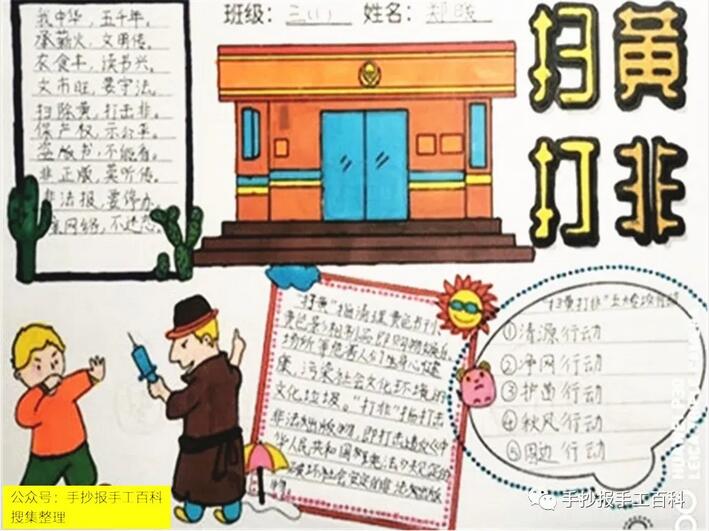 班级：三(1) 姓名：郑晙
扫黄
打非
我中华，五千年。
承薪火，文明传。
衣食丰，读书兴。
文市旺，要守法。
扫除黄，打击非。
保产权，示公平。
盗版书，不能看。
非正版，莫听传。
非法报，要停办。
网络，不迷恋。
"扫黄"指清理黄色书刊、
黄色音像制品
场所等危害人们身心健
康、污染社会文化环境的
文化垃圾。"打非"指打击
非法出版物，即打击违反《中
华人民共和国宪法》规定的
破坏社会安定的非法出版
物。
"扫黄打非"五大专项行动
①清源行动
②净网行动
③护苗行动
④秋风行动
⑤固边行动
公众号：手抄报手工百科
搜集整理
手抄报手工百科